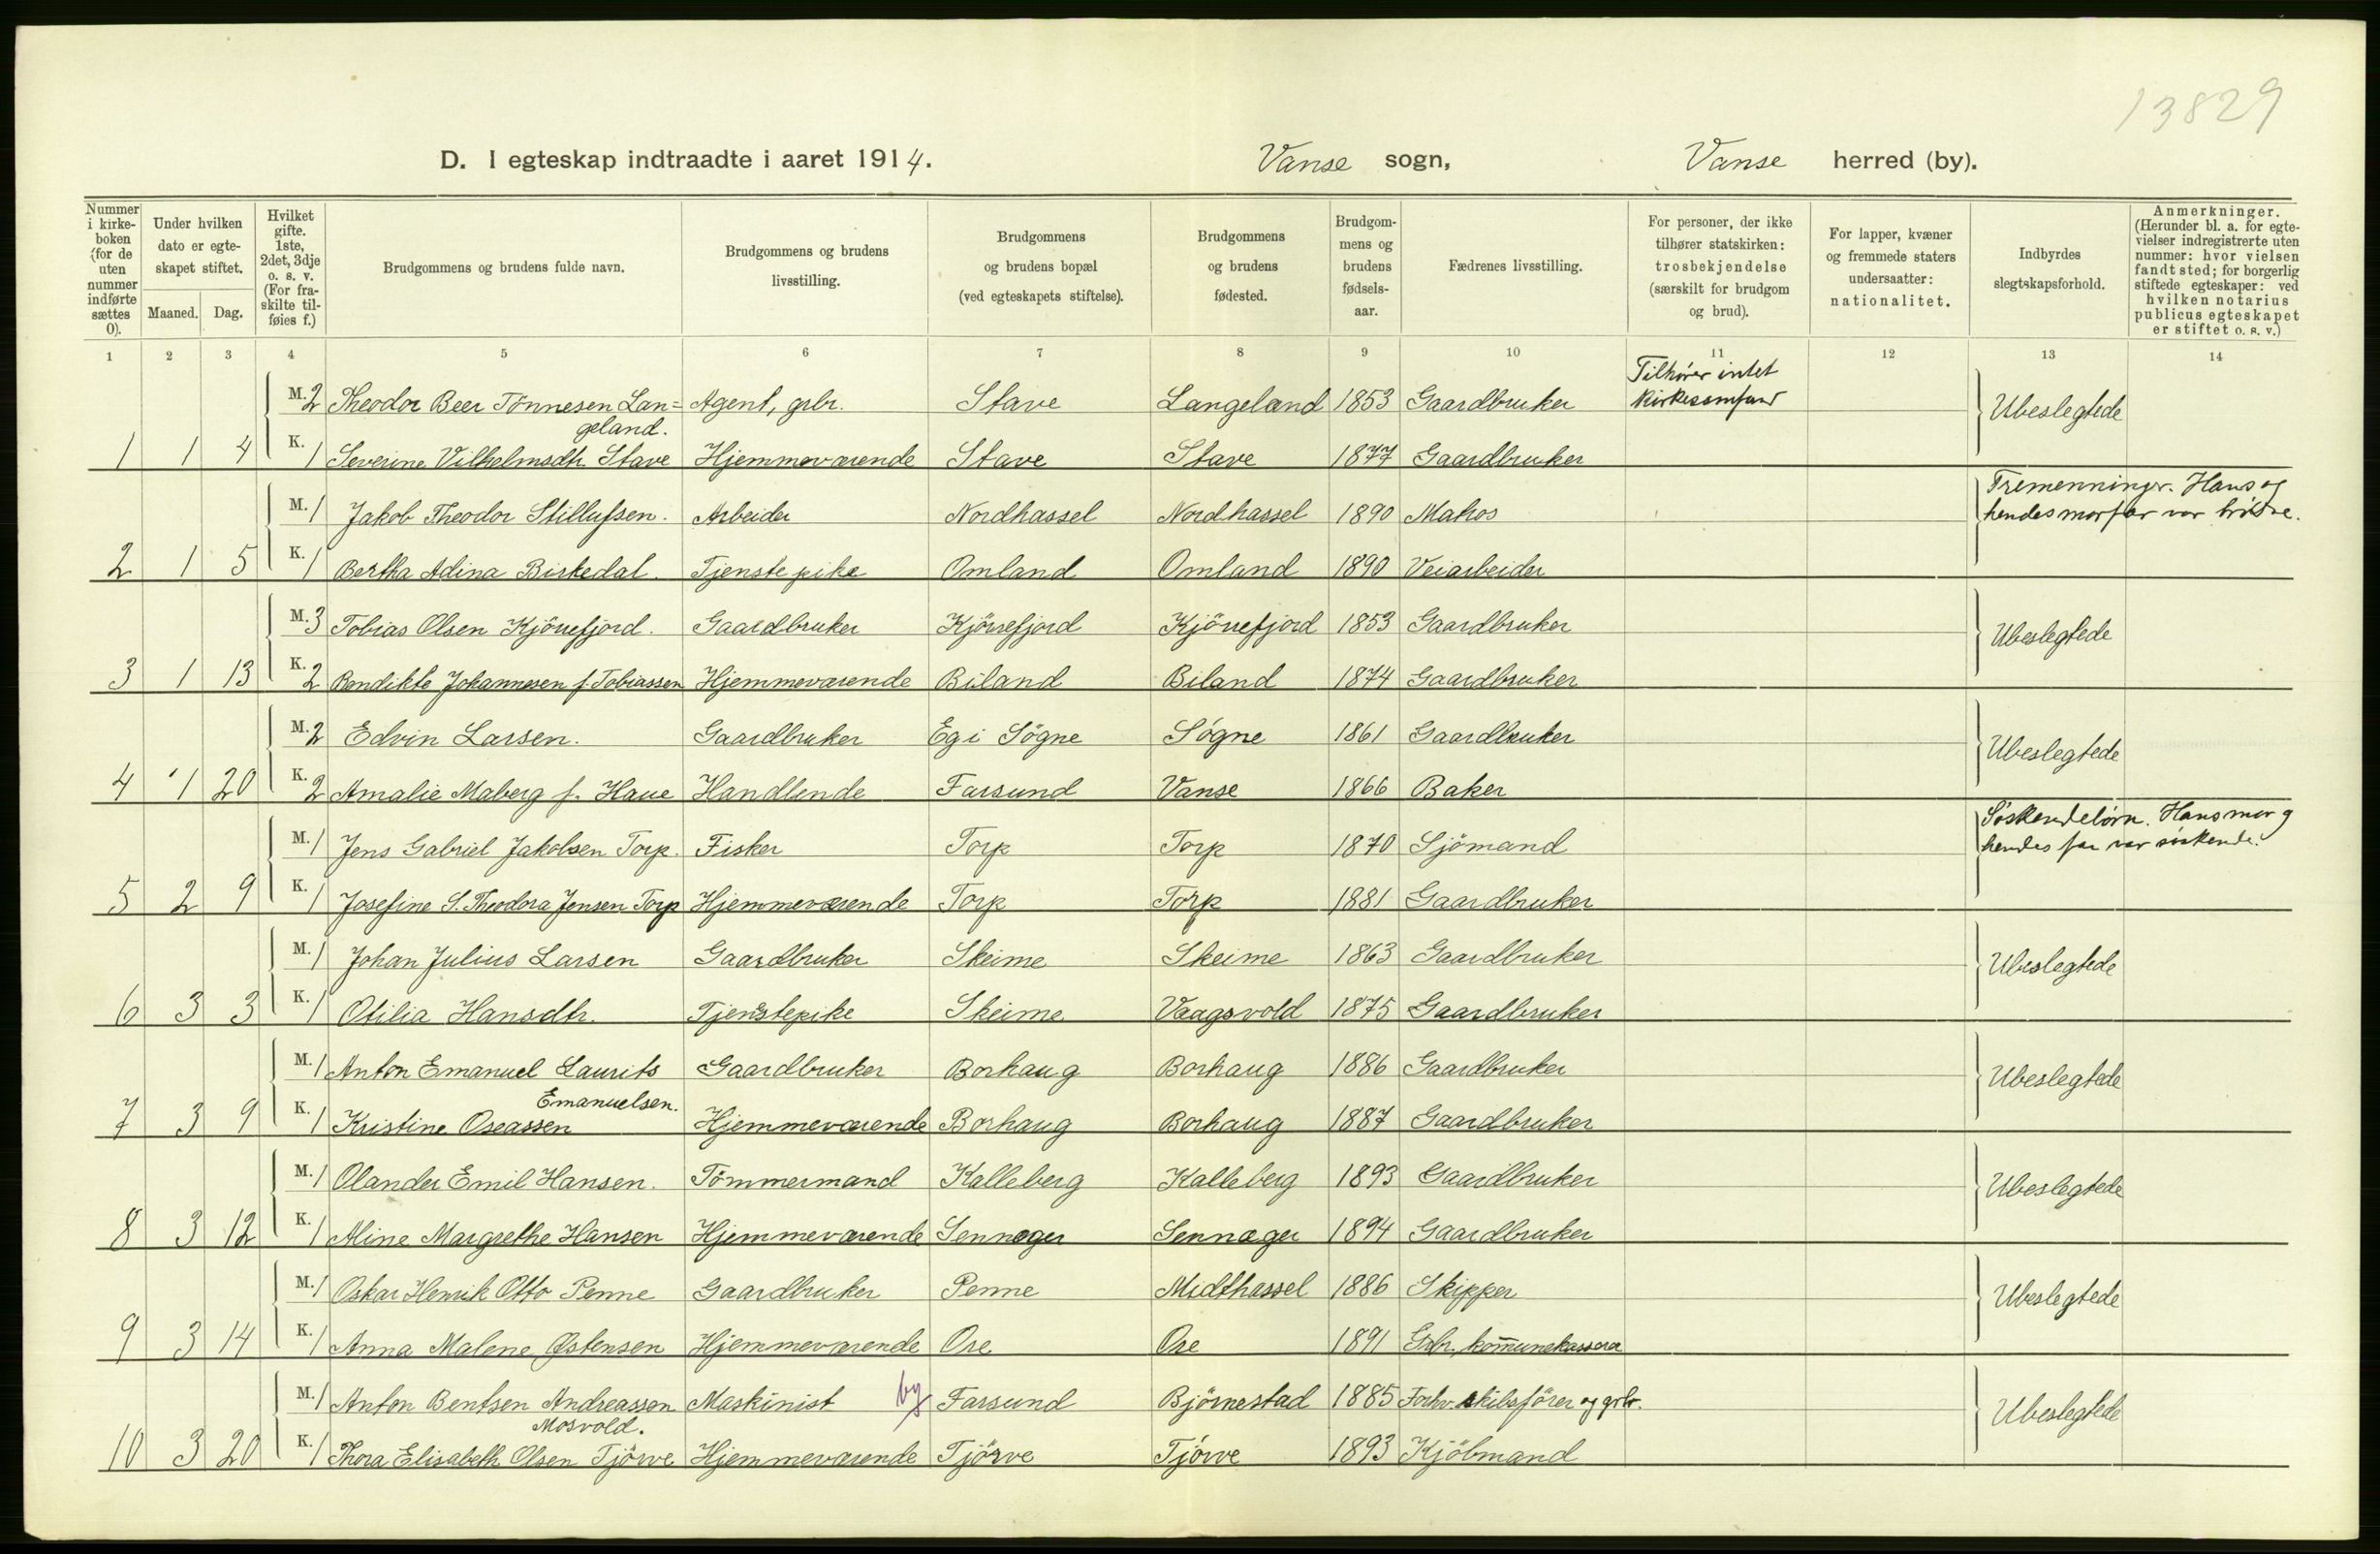 13829
D. I egteskap indtraadte i aaret 1914. Vanse sogn, Vanse herred (by).
Nummer i kirkeboken (for de uten nummer indførte sættes 0). Under hvilken dato er egteskapet stiftet. Maaned. Dag. Hvilket gifte. 1ste, 2det, 3dje o. s. v. (For fraskilte tilføies f.) Brudgommens og brudens fulde navn. Brudgommens og brudens livsstilling. Brudgommens og brudens bopæl (ved egteskapets stiftelse). Brudgommens og brudens fødested. Brudgommens og brudens fødselsaar. Fædrenes livsstilling. For personer, der ikke tilhører statskirken: trosbekjendelse (særskilt for brudgom og brud). For lapper, kvæner og fremmede staters undersaatter: nationalitet. Indbyrdes slegtskapsforhold. Anmerkninger. (Herunder bl. a. for egtevielser indregistrerte uten nummer: hvor vielsen fandt sted; for borgerlig stiftede egteskaper: ved hvilken notarius publicus egteskapet er stiftet o. s. v.)
1 2 3 4 5 6 7 8 9 10 11 12 13 14
M. 2 Theodor Beer Tönnesen Lan= Agent, grbr. Stave Langeland 1853 Gaardbruker Tilhører intet kirkesamfund Ubeslegtede
geland.
1 1 4 K. 1 Severine Vilhelmsdtr. Stave Hjemmeværende Stave Stave 1877 Gaardbruker
M. 1 Jakob Theodor Stillufsen. Arbeider Nordhassel Nordhassel 1890 Matros Tremenninger. Hans og
hendes morfar var brödre.
2 1 5 K. 1 Bertha Adina Birkedal. Tjenstepike Omland Omland 1890 Veiarbeider
M. 3 Tobias Olsen Kjörrefjord. Gaardbruker Kjörrefjord Kjörrefjord 1853 Gaardbruker Ubeslegtede
3 1 13 K. 2 Bendikte Johannesen f. Tobiassen Hjemmeværende Biland Biland 1874 Gaardbruker
M. 2 Edvin Larsen. Gaardbruker Eg i Sögne Sögne 1861 Gaardbruker Ubeslegtede
4 1 20 K. 2 Amalie Maberg f. Haue Handlende Farsund Vanse 1866 Baker
M. 1 Jens Gabriel Jakobsen Torp. Fisker Torp Torp 1870 Sjömand Söskendebörn. Hans mor og
hendes far var söskende.
5 2 9 K. 1 Josefine S. Theodora Jensen Torp Hjemmeværende Torp Torp 1881 Gaardbruker
M. 1 Johan Julius Larsen Gaardbruker Skeime Skeime 1863 Gaardbruker Ubeslegtede
6 3 3 K. 1 Otilia Hansdtr. Tjenstepike Skeime Vaagsvold 1875 Gaardbruker
M. 1 Anton Emanuel Laurits Gaardbruker Borhaug Borhaug 1886 Gaardbruker Ubeslegtede
Emanuelsen.
7 3 9 K. 1 Kristine Oseassen Hjemmeværende Borhaug Borhaug 1887 Gaardbruker
M. 1 Olander Emil Hansen. Tömmermand Kalleberg Kalleberg 1893 Gaardbruker Ubeslegtede
8 3 12 K. 1 Aline Margrethe Hansen Hjemmeværende Sennæger Sennæger 1894 Gaardbruker
M. 1 Oskar Henrik Otto Penne Gaardbruker Penne Midthassel 1886 Skipper Ubeslegtede
9 3 14 K. 1 Anna Malene Østensen Hjemmeværende Ore Ore 1891 Grbr., kommunekasserer
M. 1 Anton Bentsen Andreassen Maskinist by Farsund Björnestad 1885 Forhv. skibsförer og grbr. Ubeslegtede
Mosvold.
10 3 20 K. 1 Thora Elisabeth Olsen Tjörve Hjemmeværende Tjörve Tjörve 1893 Kjöbmand